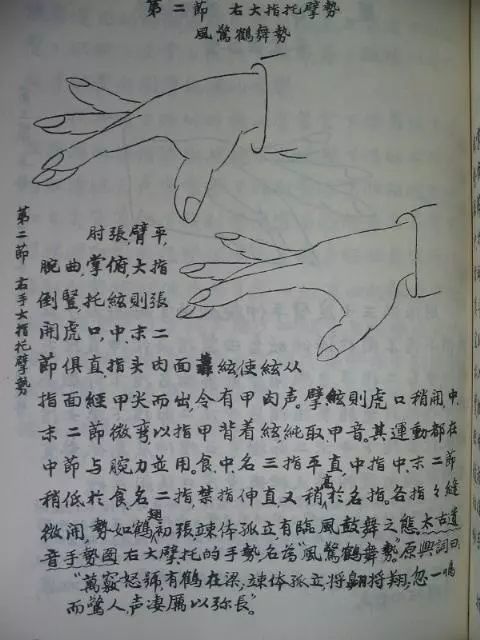 第二節 右大指托擘勢
風驚鶴舞勢
第二節 右手大指托擘勢
肘張臂平,
腕曲,掌俯大指
倒豎,托絃則張
開虎口,中、末二
節俱直,指头肉面 絃使絃从
指面經甲尖而出,令有甲肉声。擘絃則虎口稍開,中、
末二節微弯以指甲背着絃,純取甲音。其運動都在
中節与腕力並用。食、中、名三指平直,中指中、末二節
稍低於食、名二指,禁指伸直,又稍高於名指。各指々縫
微開,勢如鶴翅初張竦体孤立,有臨風鼓舞之態。太古遺
音手勢图右大擘托的手勢,名为“風驚鶴舞勢”。原興詞曰:
“萬竅怒號,有鶴在梁,竦体孤立,将翱将翔,忽一鳴
而驚人,声凄厲以弥長”。